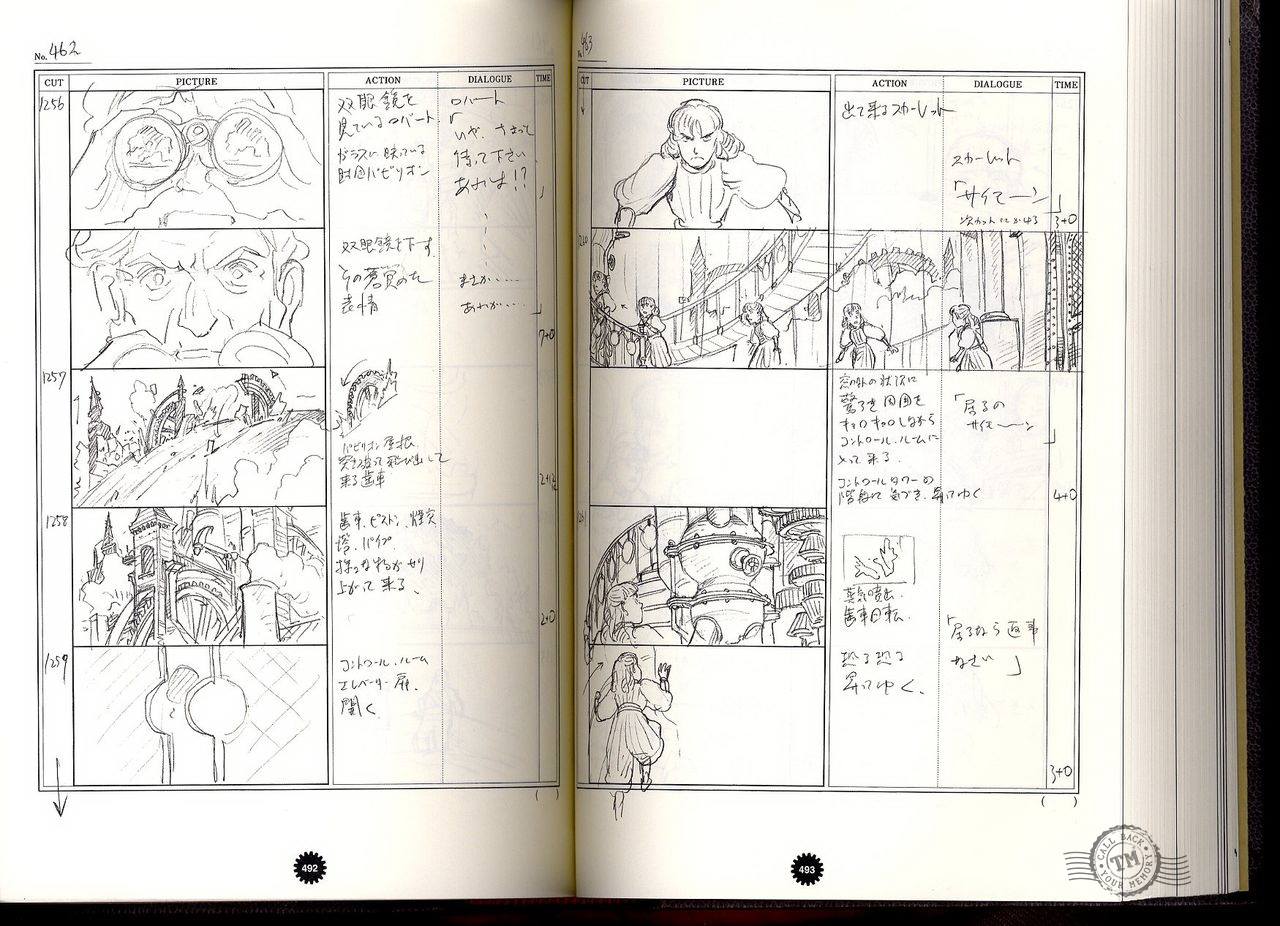 No. 462
CUT PICTURE ACTION DIALOGUE TIME
1256
双眼鏡を
見ているロバート
ガラスに映っている
財団パビリオン
ロバート
「
いや、
待って下さい
あれは!?
双眼鏡を下す。
その驚愕の
表情
まさか……
あれが……
」
7+0
1257
パビリオン屋根
突き破って飛び出して
来る歯車
2+12
1258
歯車、ピストン、煙突
塔、パイプ、
様々なものがせり
上がって来る、
2+0
1259
コントロール・ルーム
エレベーター扉、
開く
( )
492
No. 463
CUT PICTURE ACTION DIALOGUE TIME
出て来るスカーレット
スカーレット
「サイモーン
」
次カットにかかる
3+0
1260
窓外の状況に
驚き周囲を
キョロキョロしながら
コントロール・ルームに
入って来る.
コントロールタワーの
階段に気づき、昇ってゆく
「居るの
サイモーン
」
4+0
1261
蒸気噴出.
歯車回転.
「居るなら返事
なさい」
恐る恐る
昇ってゆく、
3+0
( )
493
CALL BACK
TM
YOUR MEMORY